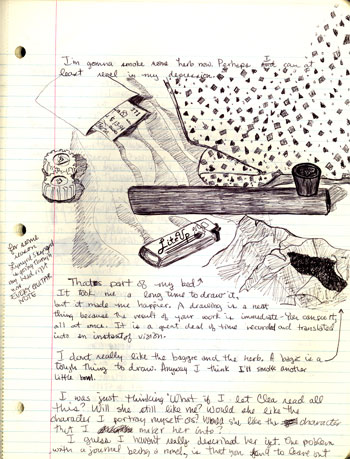 I'm gonna smoke some herb now. Perhaps I can at
least revel in my depression.
LiteUp
For some
reason
Lynyrd Skynyrd
is going through
my head right
now
EVERY GUITAR
NOTE
That's part of my bed
It took me a long time to draw it,
but it made me happier. A drawing is a neat
thing because the result of your work is immediate - You can see it,
all at once. It is a great deal of time recorded and translated
into an instant of vision.
I don't really like the baggie and the herb. A bag is a
tough thing to draw. Anyway I think I'll smoke another
little bowl.
I was just thinking "What if I let Clea read all
this? Will she still like me? Would she like the
character I portray myself as? Would she like the character
that I make her into?
I guess I haven't really described her yet. One problem
with a journal being a novel, is that you tend to leave out